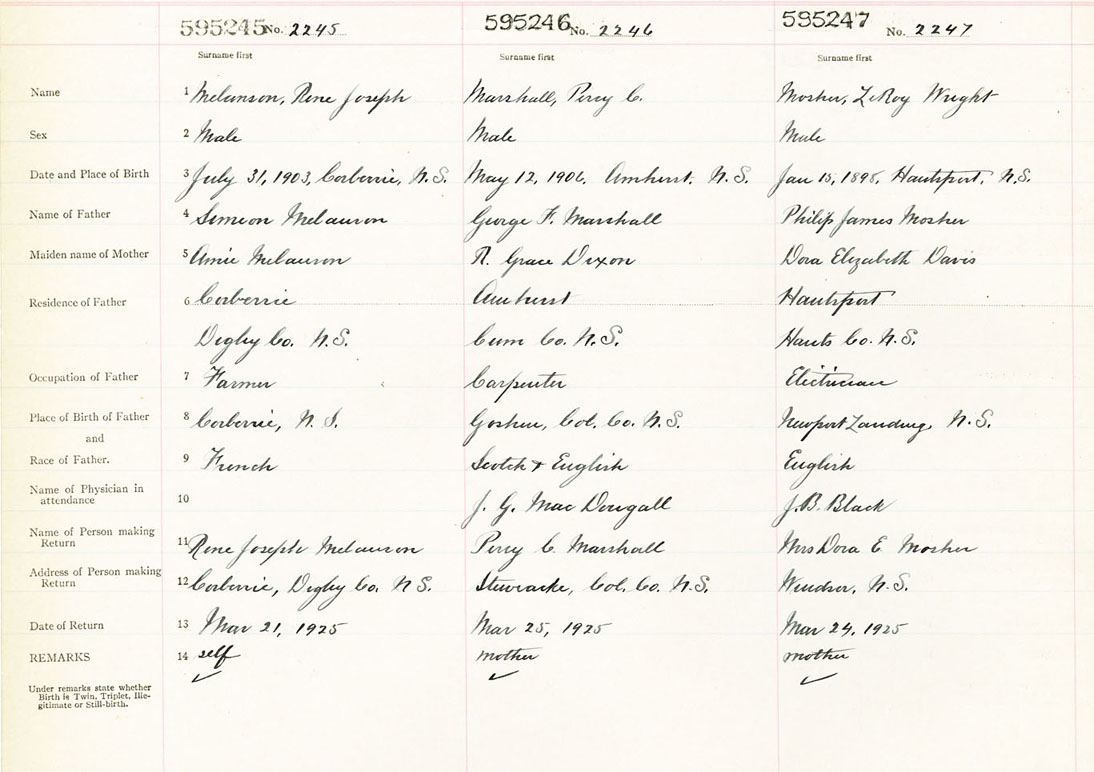 595245 No. 2245 595246 No. 2246 595247 No. 2247
Surname first Surname first Surname first
Name 1 Melanson, Rene Joseph Marshall, Percy C. Mosher, LeRoy Wright
Sex 2 Male Male Male
Date and Place of Birth 3 July 31, 1903, Corberrie, N.S. May 12, 1906. Amherst. N.S. Jan 15, 1898, Hantsport, N.S.
Name of Father 4 Simeon Melanson George F. Marshall Philip James Mosher
Maiden name of Mother 5 Amie Melanson R. Grace Dixon Dora Elizabeth Davis
Residence of Father 6 Corberrie Amherst Hantsport
Digby Co. N.S. Cum Co. N.S. Hants Co. N.S.
Occupation of Father 7 Farmer Carpenter Electrician
Place of Birth of Father 8 Corberrie, N.S. Goshen, Col. Co. N.S. Newport Landing, N.S.
and
Race of Father. 9 French Scotch & English English
Name of Physician in
attendance 10 J. G. MacDougall J.B. Black
Name of Person making
Return 11 Rene Joseph Melanson Percy C. Marshall Mrs Dora E. Mosher
Address of Person making
Return 12 Corberrie, Digby Co. N.S. Stewiacke, Col. Co. N.S. Windsor, N.S.
Date of Return 13 Mar 21, 1925 Mar 25, 1925 Mar 24, 1925
REMARKS 14 self mother mother
Under remarks state whether
Birth is Twin, Triplet, Ille-
gitimate or Still-birth.